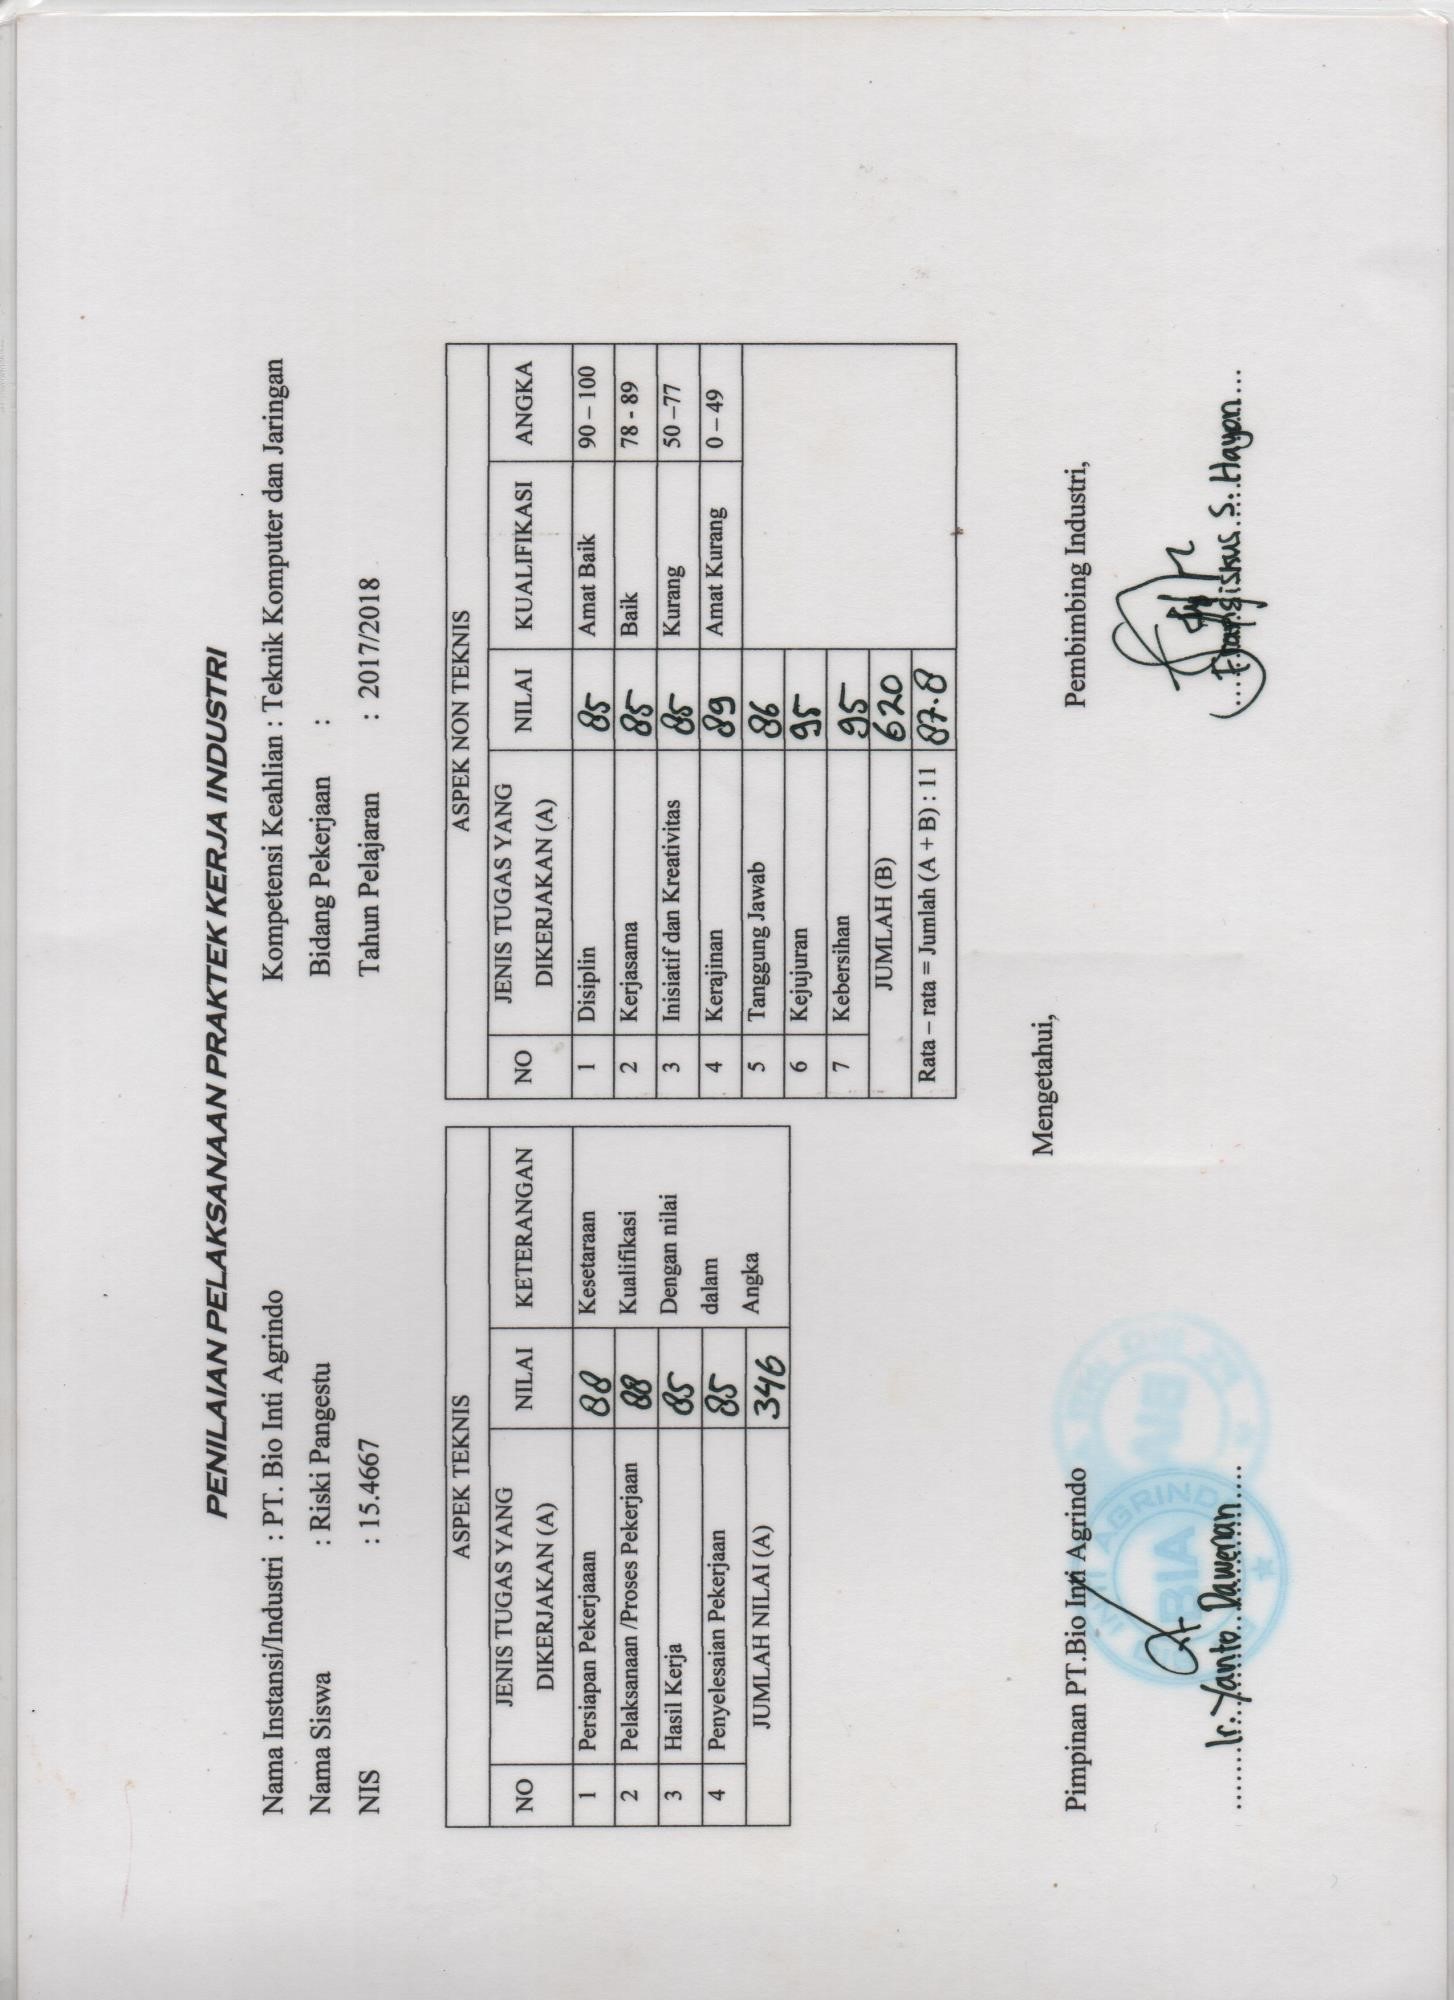 PENILAIAN PELAKSANAAN PRAKTEK KERJA INDUSTRI
Nama Instansi/Industri : PT. Bio Inti Agrindo
Nama Siswa : Riski Pangestu
NIS : 15.4667
Kompetensi Keahlian : Teknik Komputer dan Jaringan
Bidang Pekerjaan :
Tahun Pelajaran : 2017/2018
ASPEK TEKNIS
NO JENIS TUGAS YANG DIKERJAKAN (A) NILAI KETERANGAN
1 Persiapan Pekerjaaan 88 Kesetaraan
2 Pelaksanaan /Proses Pekerjaan 88 Kualifikasi
3 Hasil Kerja 85 Dengan nilai
4 Penyelesaian Pekerjaan 85 dalam
JUMLAH NILAI (A) 346 Angka
ASPEK NON TEKNIS
NO JENIS TUGAS YANG DIKERJAKAN (A) NILAI KUALIFIKASI ANGKA
1 Disiplin 85 Amat Baik 90 – 100
2 Kerjasama 85 Baik 78 - 89
3 Inisiatif dan Kreativitas 85 Kurang 50 –77
4 Kerajinan 89 Amat Kurang 0 – 49
5 Tanggung Jawab 86
6 Kejujuran 95
7 Kebersihan 95
JUMLAH (B) 620
Rata – rata = Jumlah (A + B) : 11 87.8
Mengetahui,
Pimpinan PT.Bio Inti Agrindo
Ir. Yanto Dawenan
BIA
INTI AGRIND
Pembimbing Industri,
Fransiskus S. Hayon